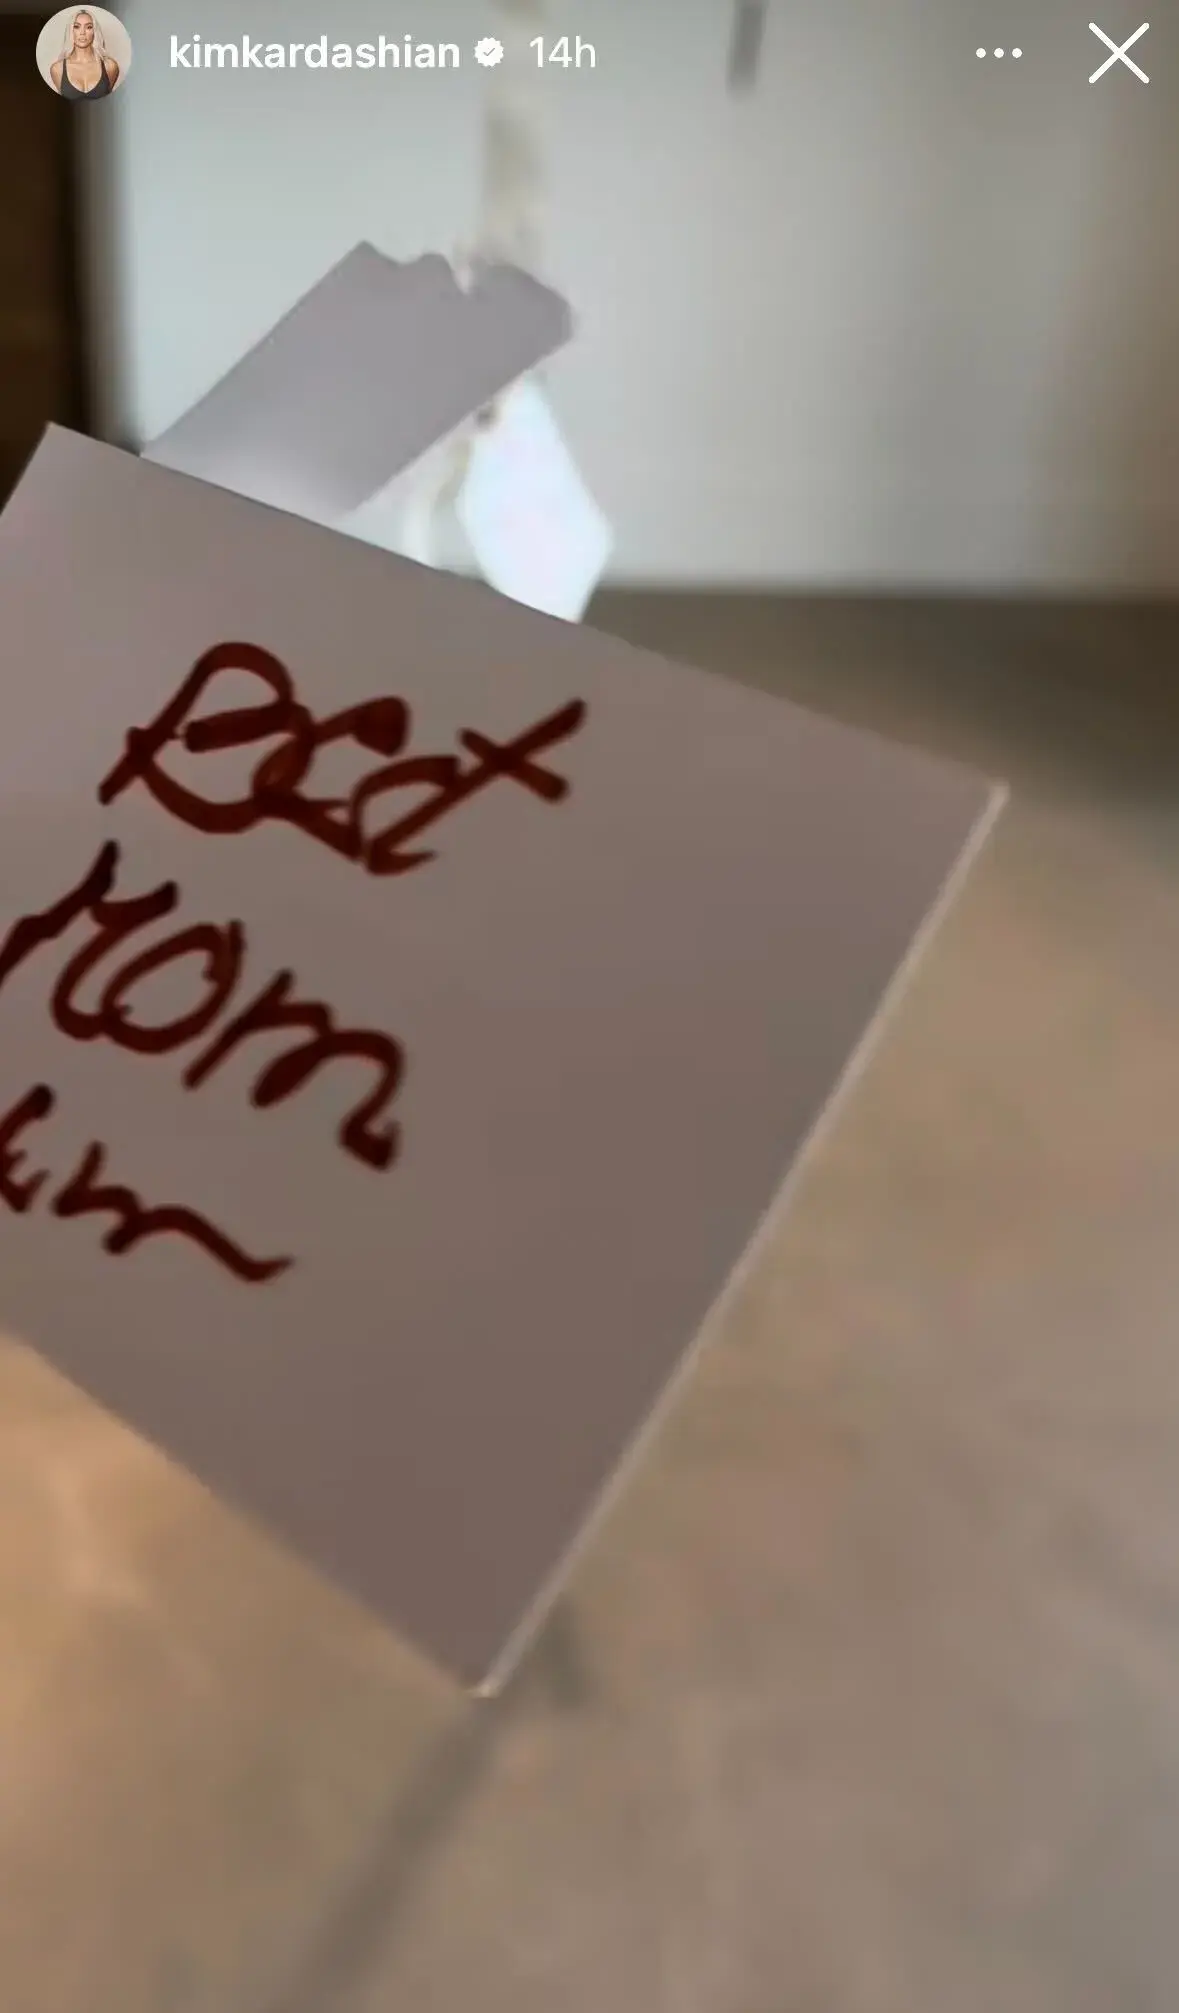 kimkardashian 14h
Best
Mom